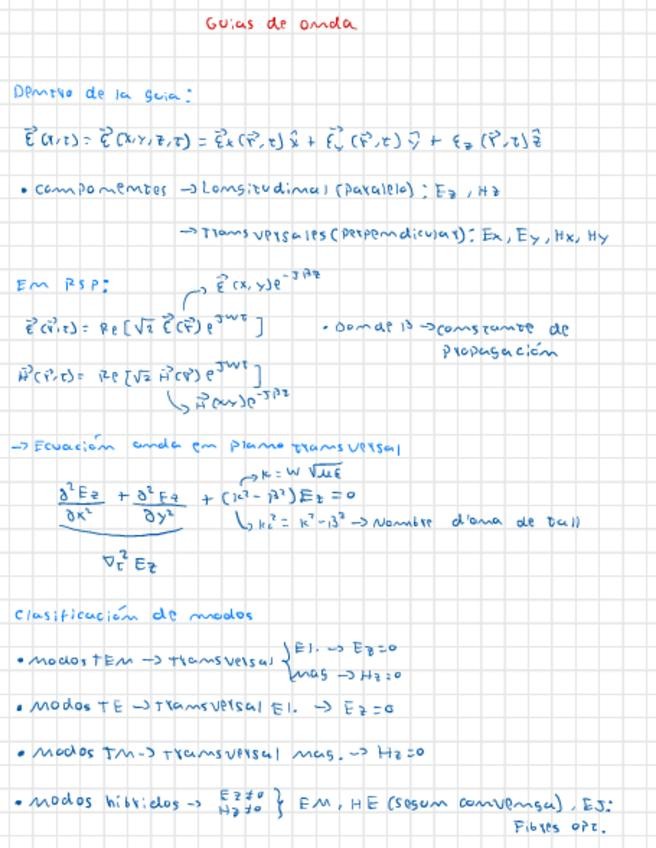 Guias de onda
Dentro de la guia:
E⃗(r,t) = E⃗(x,y,z,t) = E⃗x(r⃗,t) x̂ + E⃗y(r⃗,t) ŷ + Ez(r⃗,t) ẑ
• componentes → Longitudinal (paralelo): Ez, Hz
→ Transversales (perpendicular): Ex, Ey, Hx, Hy
En RSP:
E⃗(x,y)e^-jβz
E⃗(r⃗,t) = Re[√2 E⃗(r⃗) e^jwt]
• Donde β → constante de
propagación
H⃗(r⃗,t) = Re[√2 H⃗(r⃗) e^jwt]
H⃗(x,y)e^-jβz
→ Ecuación onda en plano transversal
k = w √με
∂²Ez/∂x² + ∂²Ez/∂y² + (k² - β²) Ez = 0
kc² = k² - β² → Nombre d'ona de tall
∇t² Ez
Clasificación de modos
• modos TEM → transversal { El. → Ez=0
mag → Hz=0
• modos TE → Transversal El. → Ez=0
• modos TM → Transversal mag. → Hz=0
• modos hibridos → Ez≠0 Hz≠0 } EM, HE (segun convenga). EJ:
Fibres opt.